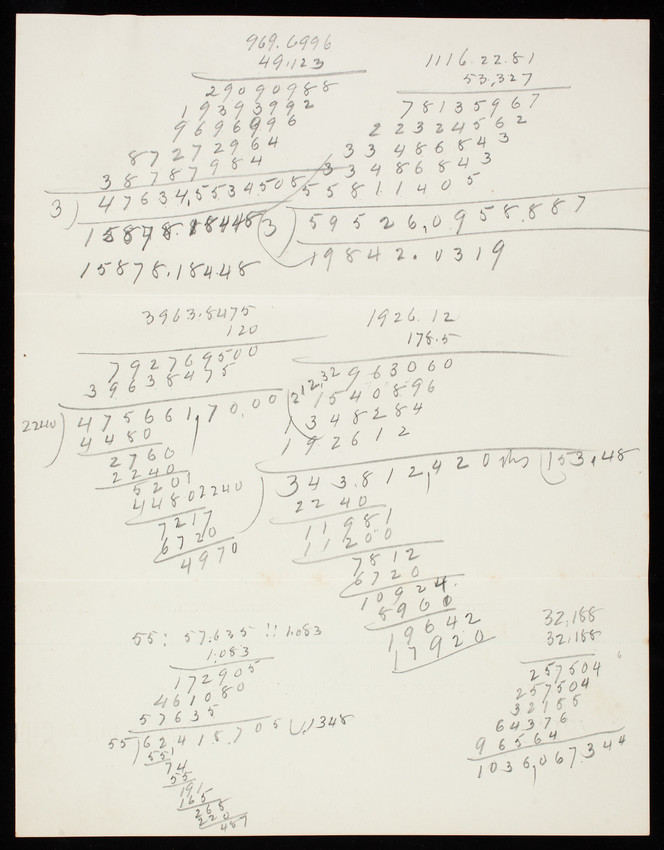 969.6996
49.123
29090988
19393992
9696996
87272964
38787984
3) 47634,5534508
15878.18448
15878.18448
1116.22.81
53,327
78135967
22324562
33486843
33486843
55811405
3) 59526,0958.887
19842.0319
3963.8475
120
792769500
39638475
2240) 475661,70.00 212,32
4480
2760
2240
5201
4480
7217
6720
4970
1926.12
178.5
963060
1540896
1348284
192612
2240) 343.812,420 153,48
2240
11981
11200
7812
6720
10924.
8960
19642
17920
55: 57.635 :: 1.083
1.083
172905
461080
57635
55) 62.418.705 1,1348
55
74
55
191
165
268
220
487
32,188
32,188
257504
257504
32188
64376
96564
1036,067.344